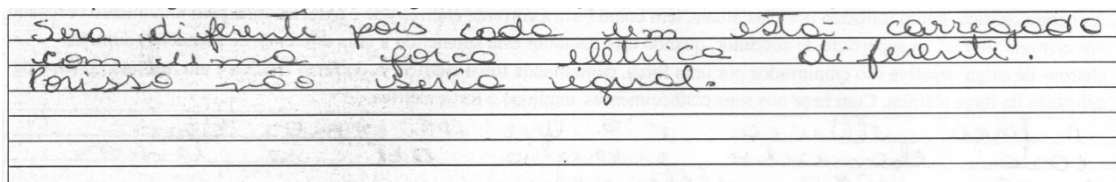 Sera diferente pois cada um está carregado
com uma força elétrica diferente.
Porisso não seria igual.